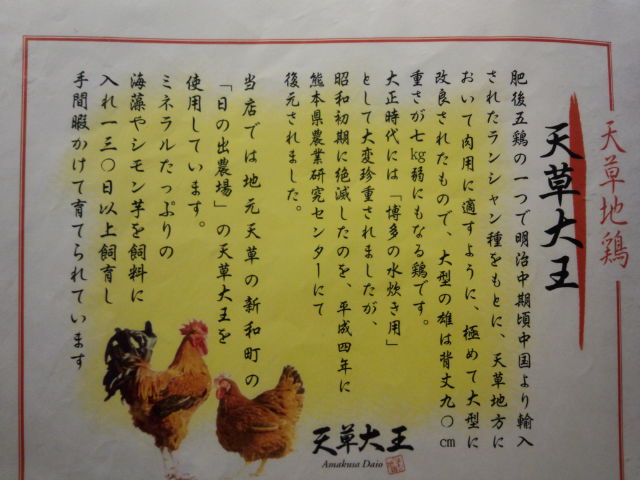 天草地鶏
天草大王
肥後五鶏の一つで明治中期頃中国より輸入
されたランシャン種をもとに、天草地方に
おいて肉用に適すように、極めて大型に
改良されたもので、大型の雄は背丈九〇㎝
重さが七㎏弱にもなる鶏です。
大正時代には「博多の水炊き用」
として大変珍重されましたが、
昭和初期に絶滅したのを、平成四年に
熊本県農業研究センターにて
復元されました。
当店では地元天草の新和町の
「日の出農場」の天草大王を
使用しています。
ミネラルたっぷりの
海藻やシモン芋を飼料に
入れ一三〇日以上飼育し
手間暇かけて育てられています
天草大王
Amakusa Daio